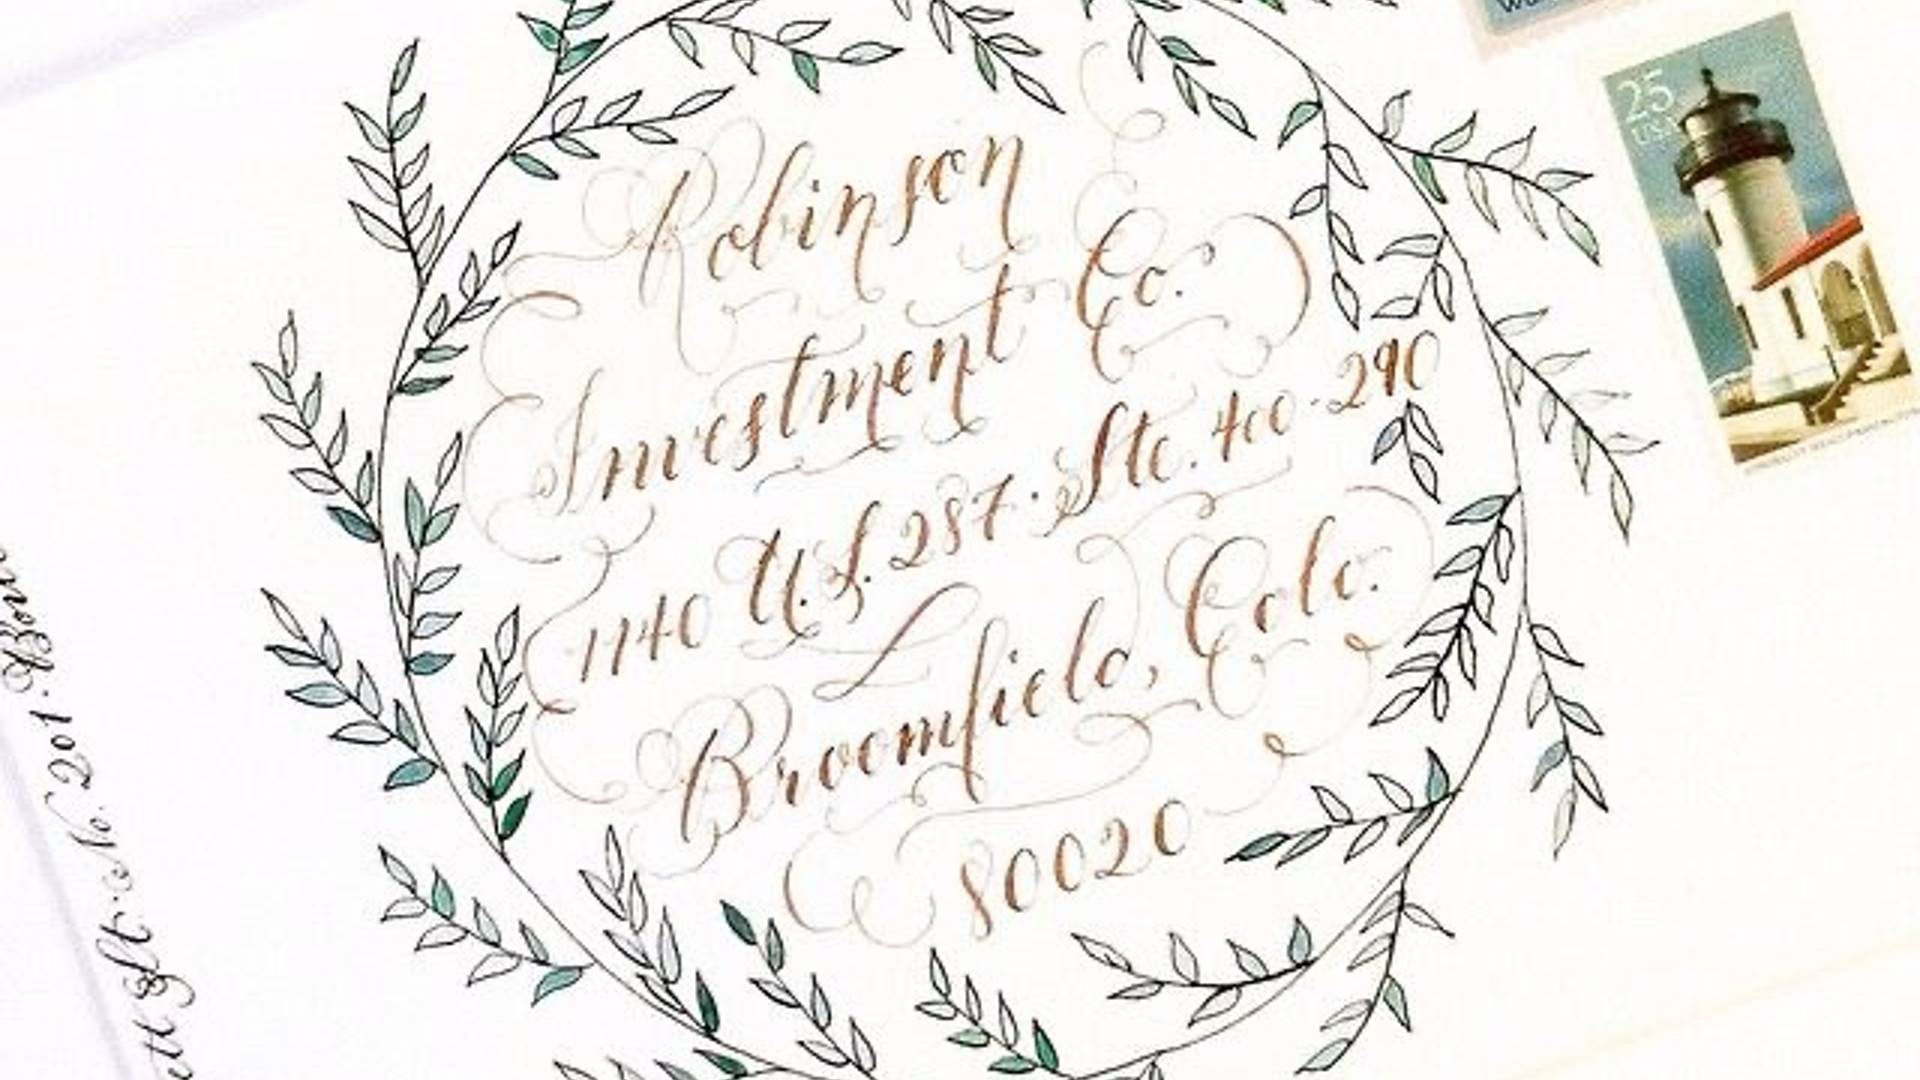 Robinson
Investment Co.
1140 U.S. 287 · Ste. 400 · 290
Broomfield, Colo.
80020
25
USA
No. 201 ·